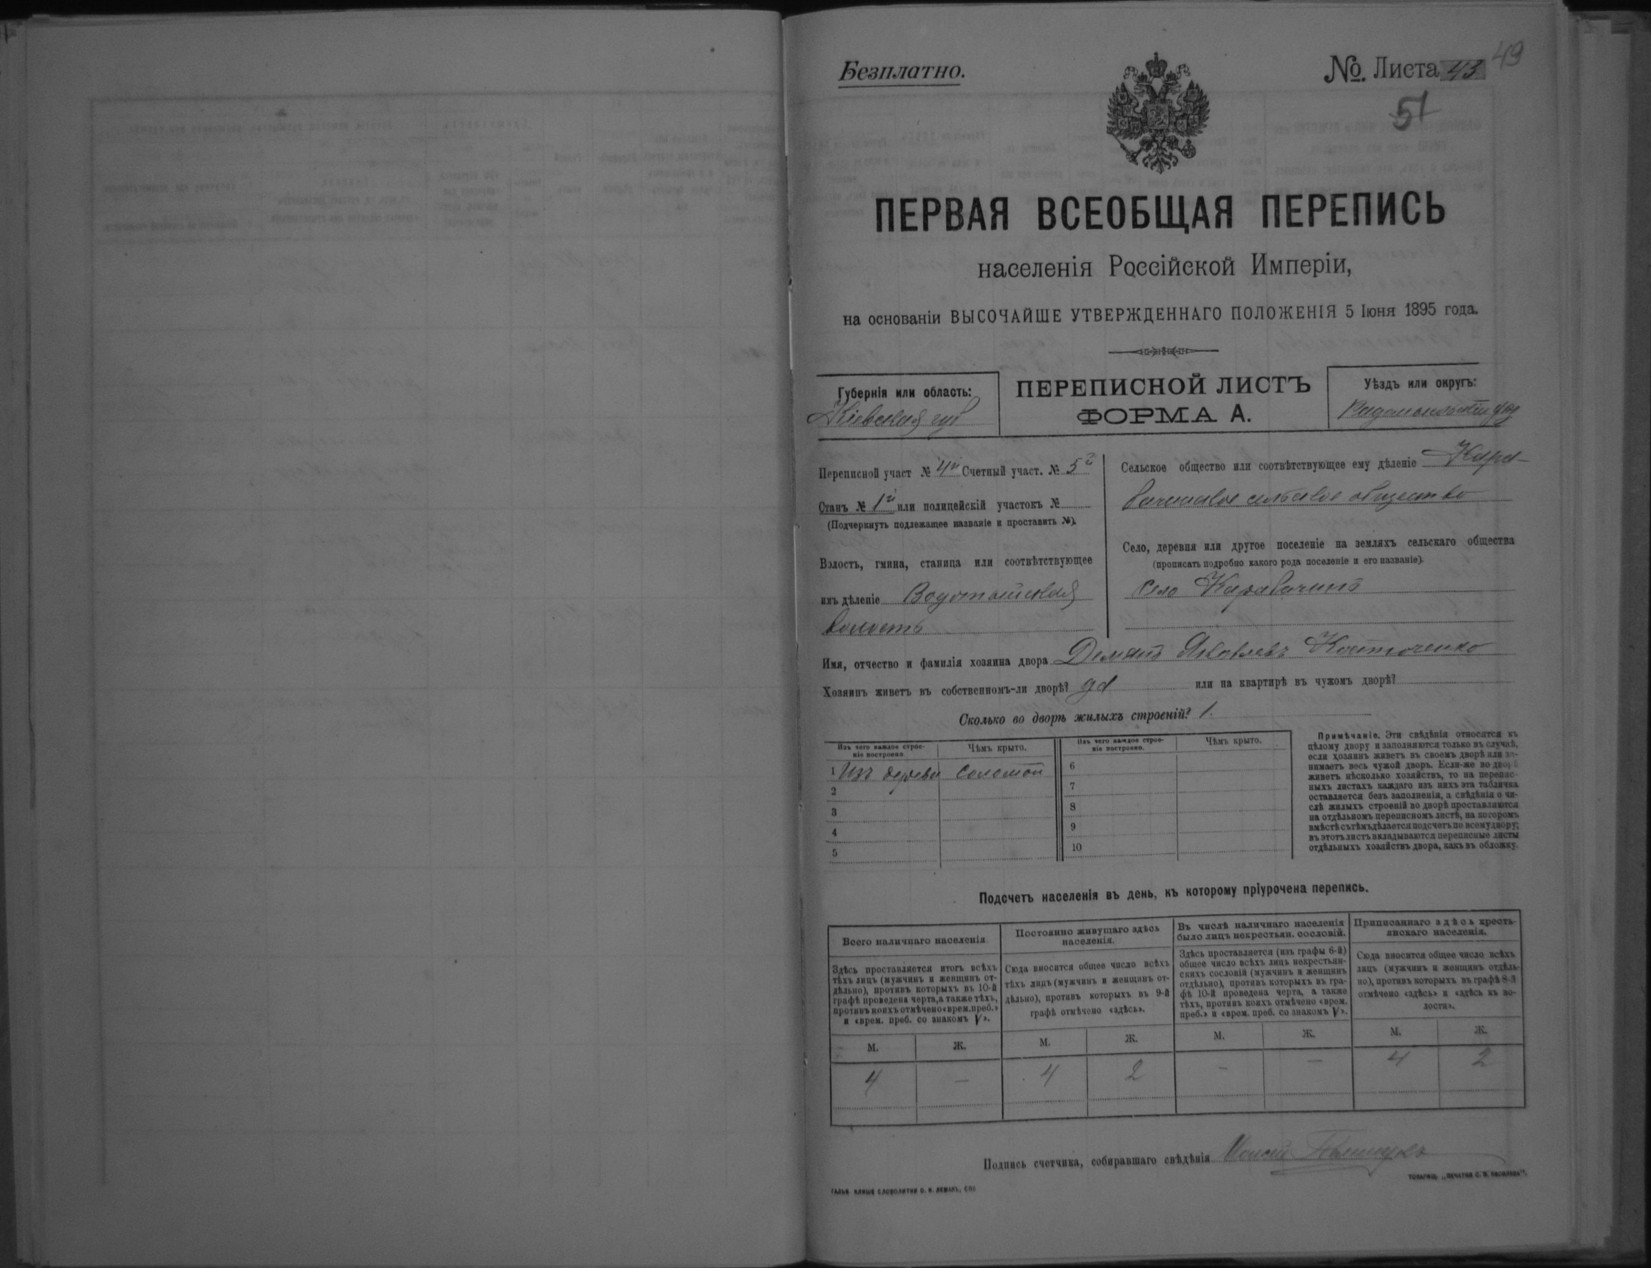 Безплатно.
№. Листа 43 49
51
ПЕРВАЯ ВСЕОБЩАЯ ПЕРЕПИСЬ
населенія Россійской Имперіи,
на основаніи ВЫСОЧАЙШЕ УТВЕРЖДЕННАГО ПОЛОЖЕНІЯ 5 Іюня 1895 года.
Губернія или область:
Кіевская губ
ПЕРЕПИСНОЙ ЛИСТЪ
ФОРМА А.
Уѣздъ или округъ:
Переписной участ № 4й Счетный участ. № 5й
Станъ № 1й или полицейскій участокъ №
(Подчеркнуть подлежащее названіе и проставить №).
Волость, гмина, станица или соотвѣтствующее
имъ дѣленіе Водотыйская
волость
Сельское общество или соотвѣтствующее ему дѣленіе Кара-
сельское общество
Село, деревня или другое поселеніе на земляхъ сельскаго общества
(прописать подробно какого рода поселеніе и его названіе).
село Каравачинъ
Имя, отчество и фамилія хозяина двора Демянъ Яковлевъ Костюченко
Хозяинъ живетъ въ собственномъ-ли дворѣ? да или на квартирѣ въ чужомъ дворѣ?
Сколько во дворѣ жилыхъ строеній? 1.
Изъ чего каждое строе-
ніе построено.
Чѣмъ крыто.
1 Изъ дерева соломой
2
3
4
5
Изъ чего каждое строе-
ніе построено.
Чѣмъ крыто.
6
7
8
9
10
Примѣчаніе. Эти свѣдѣнія относятся къ
цѣлому двору и заполняются только въ случаѣ,
если хозяинъ живетъ въ своемъ дворѣ или за-
нимаетъ весь чужой дворъ. Если-же во дворѣ
живетъ нѣсколько хозяйствъ, то на перепис-
ныхъ листахъ каждаго изъ нихъ эта табличка
оставляется безъ заполненія, а свѣдѣнія о чи-
слѣ жилыхъ строеній во дворѣ проставляются
на отдѣльномъ переписномъ листѣ, на которомъ
вмѣстѣ съ тѣмъ дѣлается подсчетъ по всему двору;
въ этотъ листъ вкладываются переписные листы
отдѣльныхъ хозяйствъ двора, какъ въ обложку.
Подсчетъ населенія въ день, къ которому пріурочена перепись.
Всего наличнаго населенія.
Здѣсь проставляется итогъ всѣхъ
тѣхъ лицъ (мужчинъ и женщинъ от-
дѣльно), противъ которыхъ въ 10-й
графѣ проведена черта, а также тѣхъ,
противъ коихъ отмѣчено «врем. преб.»
и «врем. преб. со знакомъ V».
Постоянно живущаго здѣсь
населенія.
Сюда вносится общее число всѣхъ
тѣхъ лицъ (мужчинъ и женщинъ от-
дѣльно), противъ которыхъ въ 9-й
графѣ отмѣчено «здѣсь».
Въ числѣ наличнаго населенія
было лицъ некрестьян. сословій.
Здѣсь проставляется (изъ графы 6-й)
общее число всѣхъ лицъ некрестьян-
скихъ сословій (мужчинъ и женщинъ
отдѣльно), противъ которыхъ въ гра-
фѣ 10-й проведена черта, а также
тѣхъ, противъ коихъ отмѣчено «врем.
преб.» и «врем. преб. со знакомъ V».
Приписаннаго здѣсь кресть-
янскаго населенія.
Сюда вносится общее число всѣхъ
лицъ (мужчинъ и женщинъ отдѣль-
но), противъ которыхъ въ графѣ 8-й
отмѣчено «здѣсь» и «здѣсь въ во-
лости».
М. Ж. М. Ж. М. Ж. М. Ж.
4 — 4 2 — — 4 2
Подпись счетчика, собиравшаго свѣдѣнія